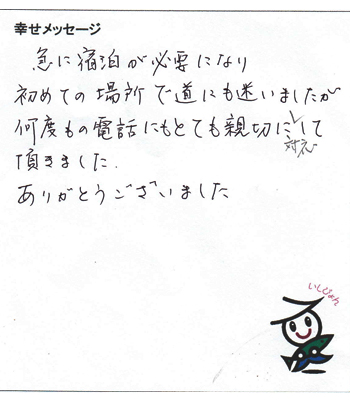 幸せメッセージ
急に宿泊が必要になり
初めての場所で道にも迷いましたが
何度もの電話にもとても親切に対応して
頂きました.
ありがとうございました